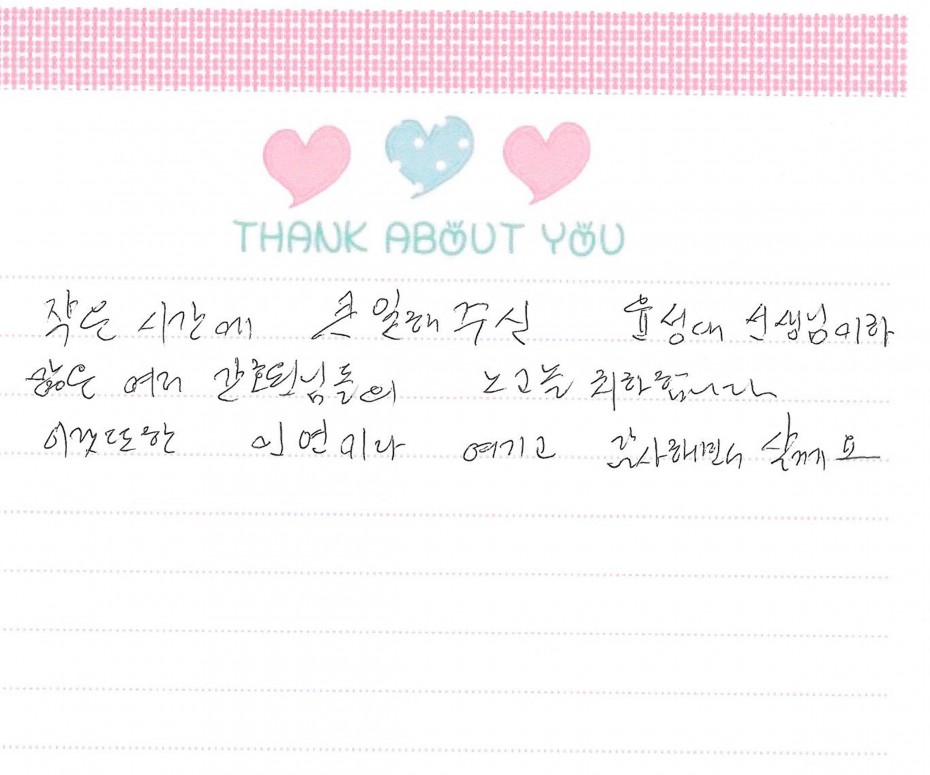 THANK ABOUT YOU
작은 시간에 큰일해 주신 윤성대 선생님이하
많은 여러 간호원님들의 노고늘 치하합니다
이것또한 인연이라 여기고 감사해면서 살께요